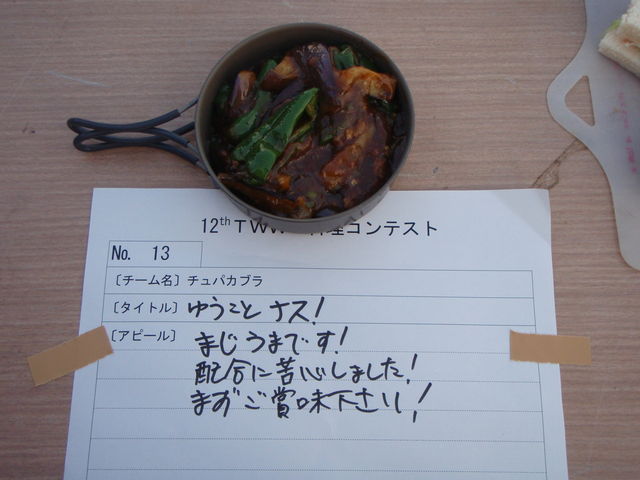 12thTWW 料理コンテスト
No. 13
〔チーム名〕チュパカブラ
〔タイトル〕ゆうこと ナス!
〔アピール〕まじうまです!
配合に苦心しました!
まずご賞味下さい!